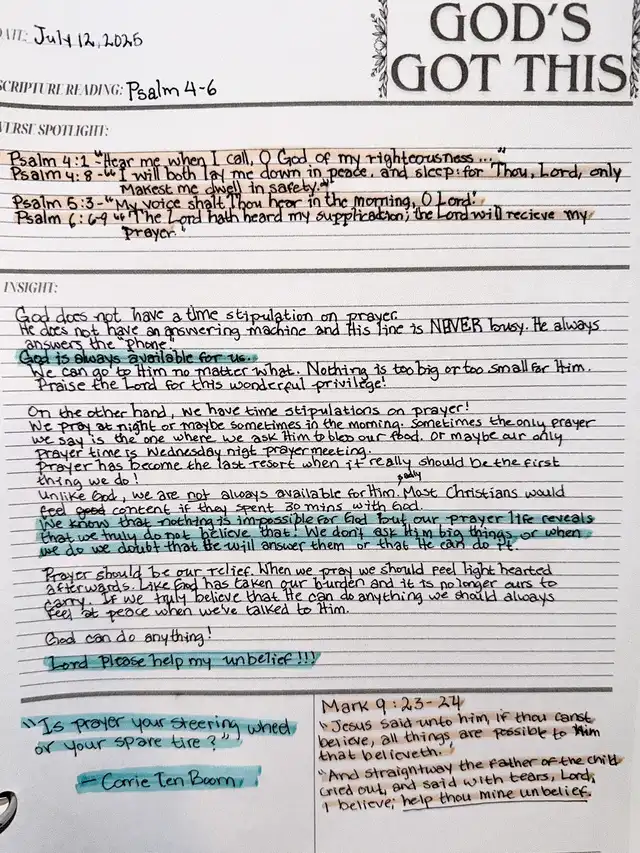 GOD'S
GOT THIS
DATE: July 12, 2025
SCRIPTURE READING: Psalm 4-6
VERSE SPOTLIGHT:
Psalm 4:1 "Hear me when I call, O God of my righteousness..."
Psalm 4:8 - "I will both lay me down in peace, and sleep: for Thou, Lord, only
Makest me dwell in safety."
Psalm 5:3 - "My voice shalt Thou hear in the morning, O Lord."
Psalm 6:69 "The Lord hath heard my supplication; the Lord will recieve my
prayer."
INSIGHT:
God does not have a time stipulation on prayer.
He does not have an answering machine and His line is NEVER busy. He always
answers the "phone."
God is always available for us.
We can go to Him no matter what. Nothing is too big or too small for Him.
Praise the Lord for this wonderful privilege!
On the other hand, we have time stipulations on prayer!
We pray at night or maybe sometimes in the morning. Sometimes the only prayer
we say is the one where we ask Him to bless our food. Or maybe our only
prayer time is Wednesday nigt prayer meeting.
Prayer has become the last resort when it really should be the first
thing we do!
Unlike God, we are not always available for Him. Sadly Most Christians would
feel good content if they spent 30 mins with God.
We know that nothing is impossible for God but our prayer life reveals
that we truly do not believe that! We don't ask Him big things or when
we do we doubt that He will answer them or that He can do it.
Prayer should be our relief. When we pray we should feel light hearted
afterwards. Like God has taken our burden and it is no longer ours to
carry. If we truly believe that He can do anything we should always
feel at peace when we've talked to Him.
God can do anything!
Lord Please help my unbelief!!!
"Is prayer your steering wheel
or your spare tire?"
- Corrie Ten Boom
Mark 9:23-24
"Jesus said unto him, if thou canst
believe, all things are possible to Him
that believeth.
"And straightway the father of the child
cried out, and said with tears, Lord,
I believe; help thou mine unbelief.